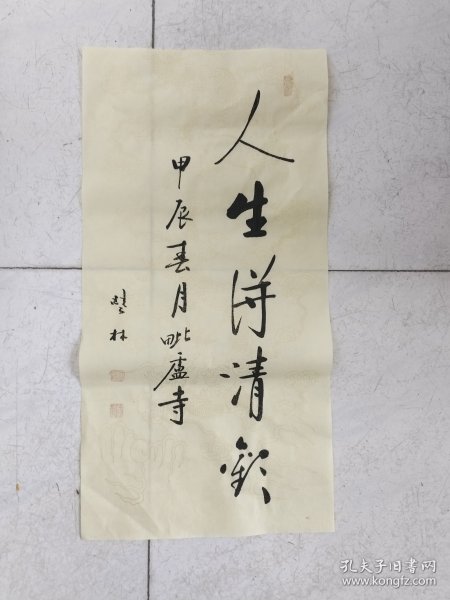 人生得清歡
甲辰春月毗盧寺
林
孔夫子旧书网
www.kongfz.com